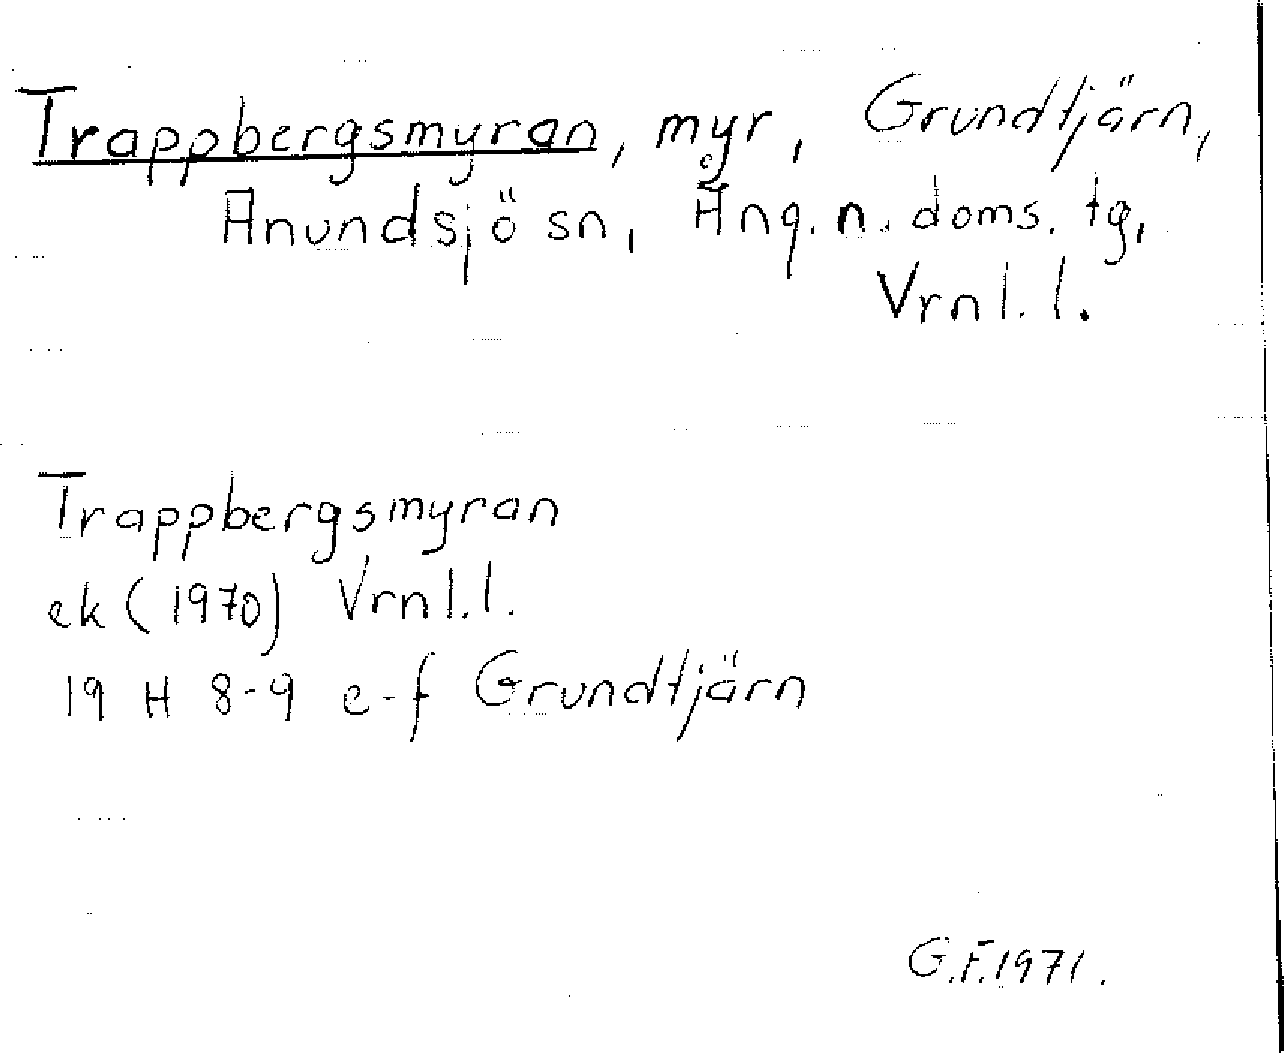 Trappbergsmyran, myr, Grundtjärn,
Anundsjö sn, Ång. n. doms. tg,
Vrnl. l.
Trappbergsmyran
ek (1970) Vrnl. l.
19 H 8-9 e-f Grundtjärn
G.F. 1971.